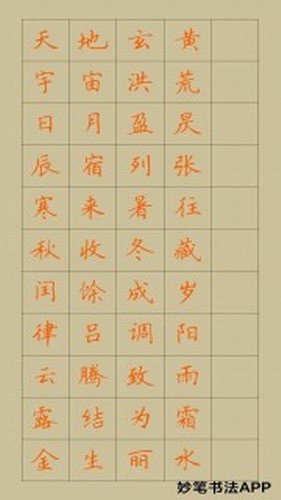 天地玄黄
宇宙洪荒
日月盈昃
辰宿列张
寒来暑往
秋收冬藏
闰馀成岁
律吕调阳
云腾致雨
露结为霜
金生丽水
妙笔书法APP